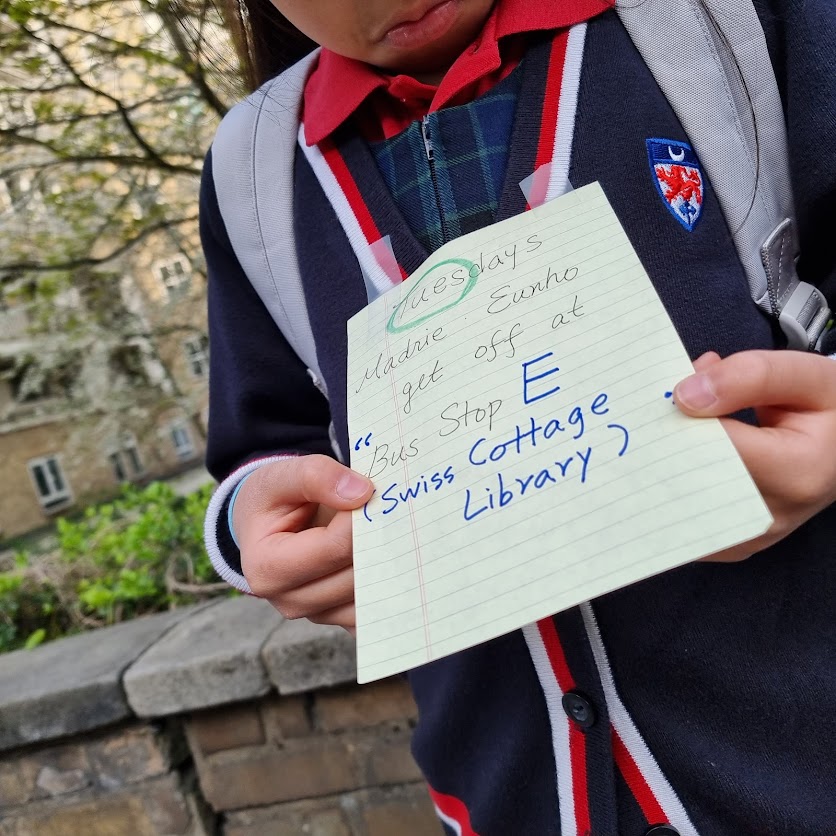 Tuesdays
Madrie. Eunho
get off at
"Bus Stop E
(Swiss Cottage
Library)